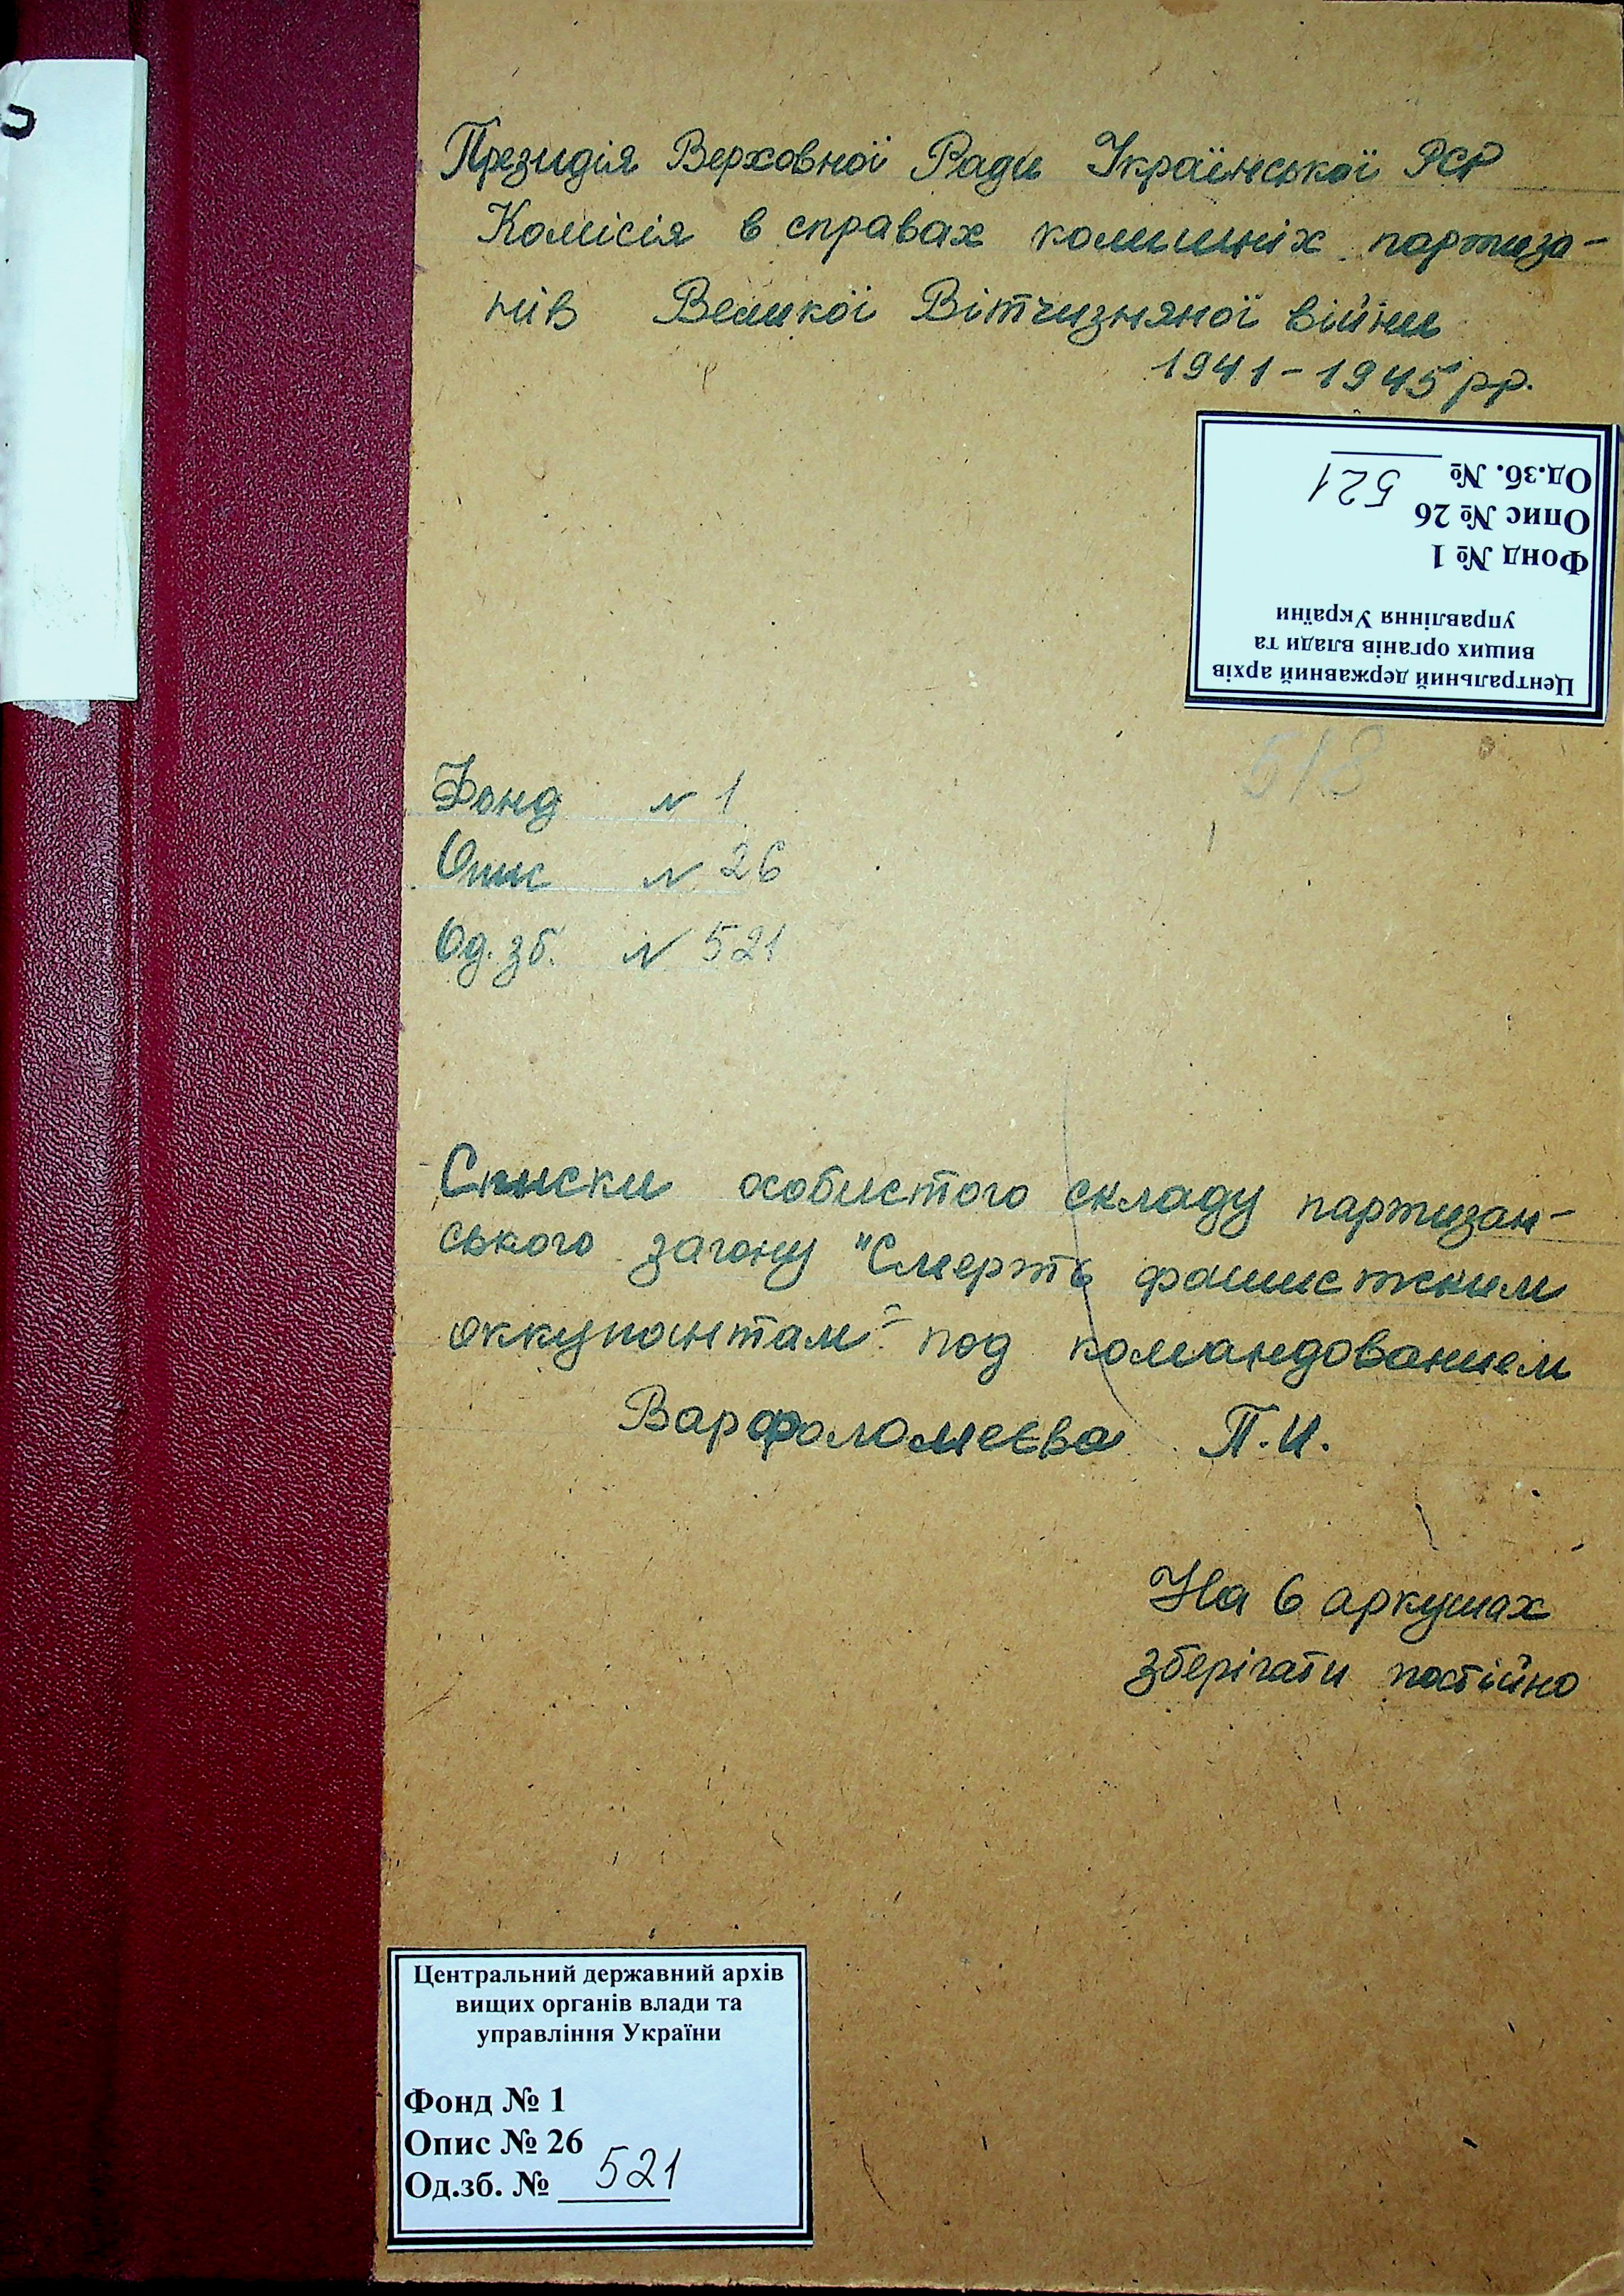 Президія Верховної Ради Української РСР
Комісія в справах колишніх партиза-
нів Великої Вітчизняної війни
1941-1945 рр.
Центральний державний архів
вищих органів влади та
управління України
Фонд № 1
Опис № 26
Од.зб. № 521
518
Фонд N 1
Опис N 26
Од. зб. N 521
Списки особистого складу партизан-
ського загону "Смерть фашистским
оккупантам" под командованием
Варфоломеєва П.И.
На 6 аркушах
зберігати постійно
Центральний державний архів
вищих органів влади та
управління України
Фонд № 1
Опис № 26
Од.зб. № 521